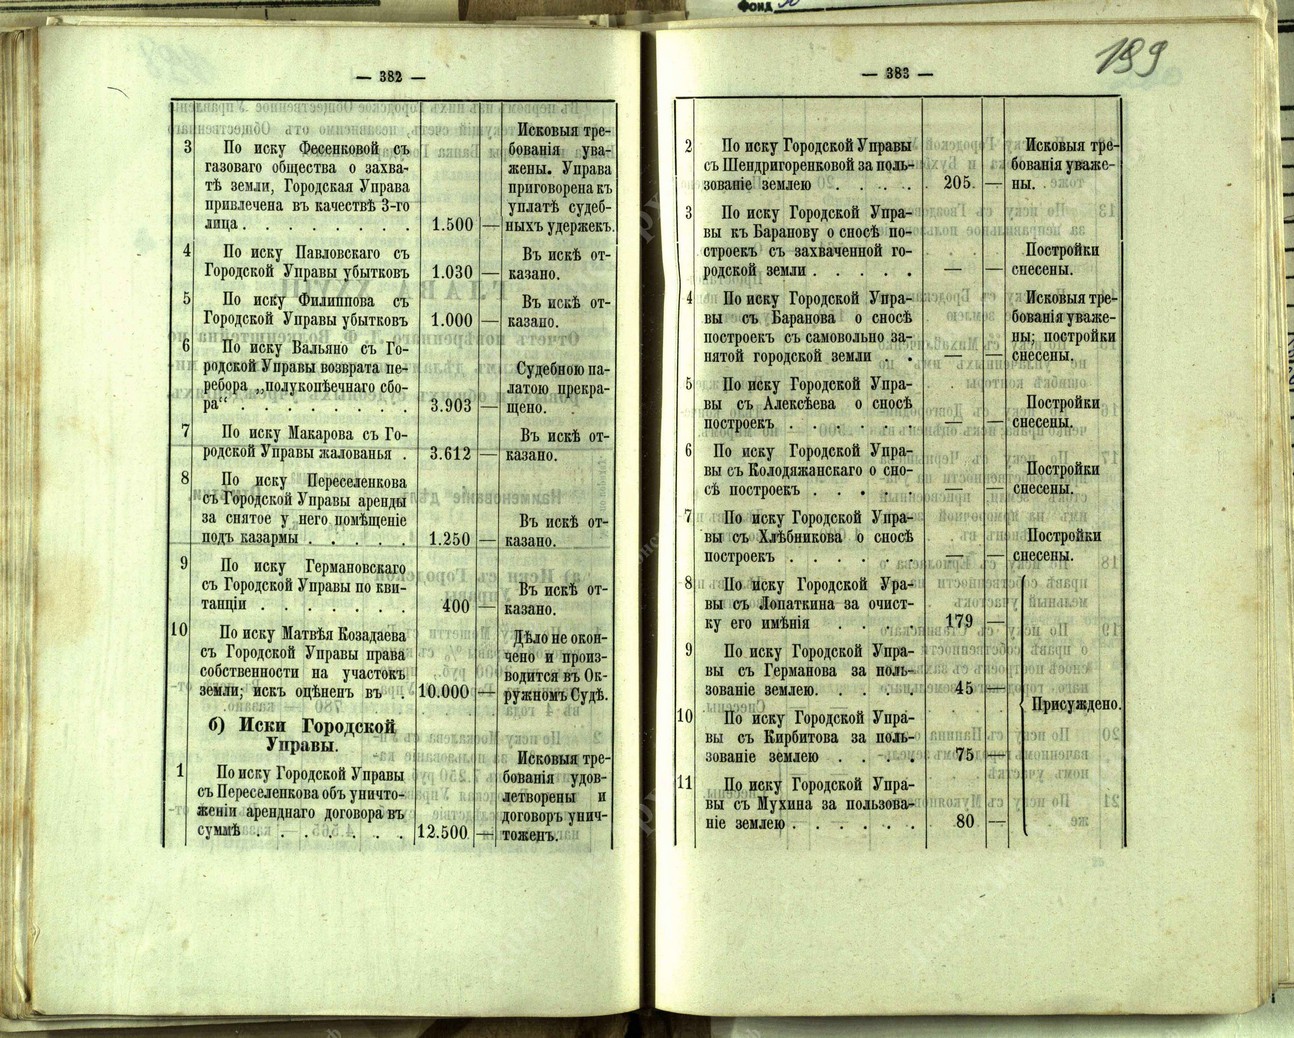 Фонд
— 382 —
3 По иску Фесенковой съ
газоваго общества о захва-
тѣ земли, Городская Управа
привлечена въ качествѣ 3-го
лица . . . . . . . . 1.500 —
Исковыя тре-
бованія ува-
жены. Управа
приговорена къ
уплатѣ судеб-
ныхъ удержекъ.
4 По иску Павловскаго съ
Городской Управы убытковъ 1.030 —
Въ искѣ от-
казано.
5 По иску Филиппова съ
Городской Управы убытковъ 1.000 —
Въ искѣ от-
казано.
6 По иску Вальяно съ Го-
родской Управы возврата пе-
ребора „полукопѣечнаго сбо-
ра“ . . . . . . . . 3.903 —
Судебною па-
латою прекра-
щено.
7 По иску Макарова съ Го-
родской Управы жалованья . 3.612 —
Въ искѣ от-
казано.
8 По иску Переселенкова
съ Городской Управы аренды
за снятое у него помѣщеніе
подъ казармы . . . . . 1.250 —
Въ искѣ от-
казано.
9 По иску Германовскаго
съ Городской Управы по кви-
танціи . . . . . . . 400 —
Въ искѣ от-
казано.
10 По иску Матвѣя Козадаева
съ Городской Управы права
собственности на участокъ
земли; искъ оцѣненъ въ . . 10.000 —
Дѣло не окон-
чено и произ-
водится въ Ок-
ружномъ Судѣ.
б) Иски Городской
Управы.
1 По иску Городской Управы
съ Переселенкова объ уничто-
женіи аренднаго договора въ
суммѣ . . . . . . 12.500 —
Исковыя тре-
бованія удов-
летворены и
договоръ унич-
тоженъ.
— 383 —
199
2 По иску Городской Управы
съ Шендригоренковой за поль-
зованіе землею . . . . . 205 —
Исковыя тре-
бованія уваже-
ны.
3 По иску Городской Упра-
вы къ Баранову о сносѣ по-
строекъ съ захваченной го-
родской земли . . . . . — —
Постройки
снесены.
4 По иску Городской Упра-
вы съ Баранова о сносѣ
построекъ съ самовольно за-
нятой городской земли . . — —
Исковыя тре-
бованія уваже-
ны; постройки
снесены.
5 По иску Городской Упра-
вы съ Алексѣева о сносѣ
построекъ . . . . . . — —
Постройки
снесены.
6 По иску Городской Упра-
вы съ Колодяжанскаго о сно-
сѣ построекъ . . . . . — —
Постройки
снесены.
7 По иску Городской Упра-
вы съ Хлѣбникова о сносѣ
построекъ . . . . . . — —
Постройки
снесены.
8 По иску Городской Ура-
вы съ Лопаткина за очист-
ку его имѣнія . . . . 179 —
9 По иску Городской Упра-
вы съ Германова за поль-
зованіе землею. . . . . 45 —
Присуждено.
10 По иску Городской Упра-
вы съ Кирбитова за поль-
зованіе землею . . . . 75 —
11 По иску Городской Упра-
вы съ Мухина за пользова-
ніе землею . . . . . . 80 —